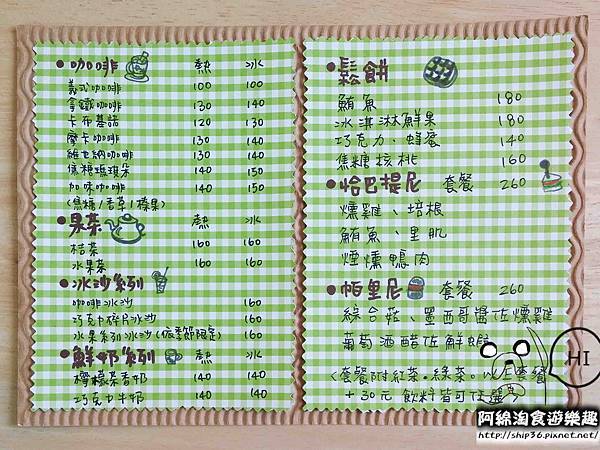 •咖啡 熱 冰
義式咖啡 100 100
拿鐵咖啡 130 140
卡布基諾 120 130
摩卡咖啡 130 140
維也納咖啡 130 140
焦糖瑪琪朵 140 150
加味咖啡 140 150
(焦糖/香草/榛果)
•果茶 熱 冰
桔茶 160 160
水果茶 160 160
•冰沙系列
咖啡冰沙 160
巧克力碎片冰沙 160
水果系列冰沙(依季節限定) 160
•鮮奶系列 熱 冰
檸檬茶香奶 140 140
巧克力牛奶 140 140
•鬆餅
鮪魚 180
冰淇淋鮮果 180
巧克力、蜂蜜 140
焦糖核桃 160
•恰巴提尼 套餐 260
燻雞、培根
鮪魚、里肌
煙燻鴨肉
•帕里尼 套餐 260
綜合菇、墨西哥醬佐燻雞
葡萄酒醋佐鮮
HI
(套餐附紅茶。綠茶。
+30元 飲料皆可任選)
阿綿淘食遊樂趣
http://ship36.pixnet.net/